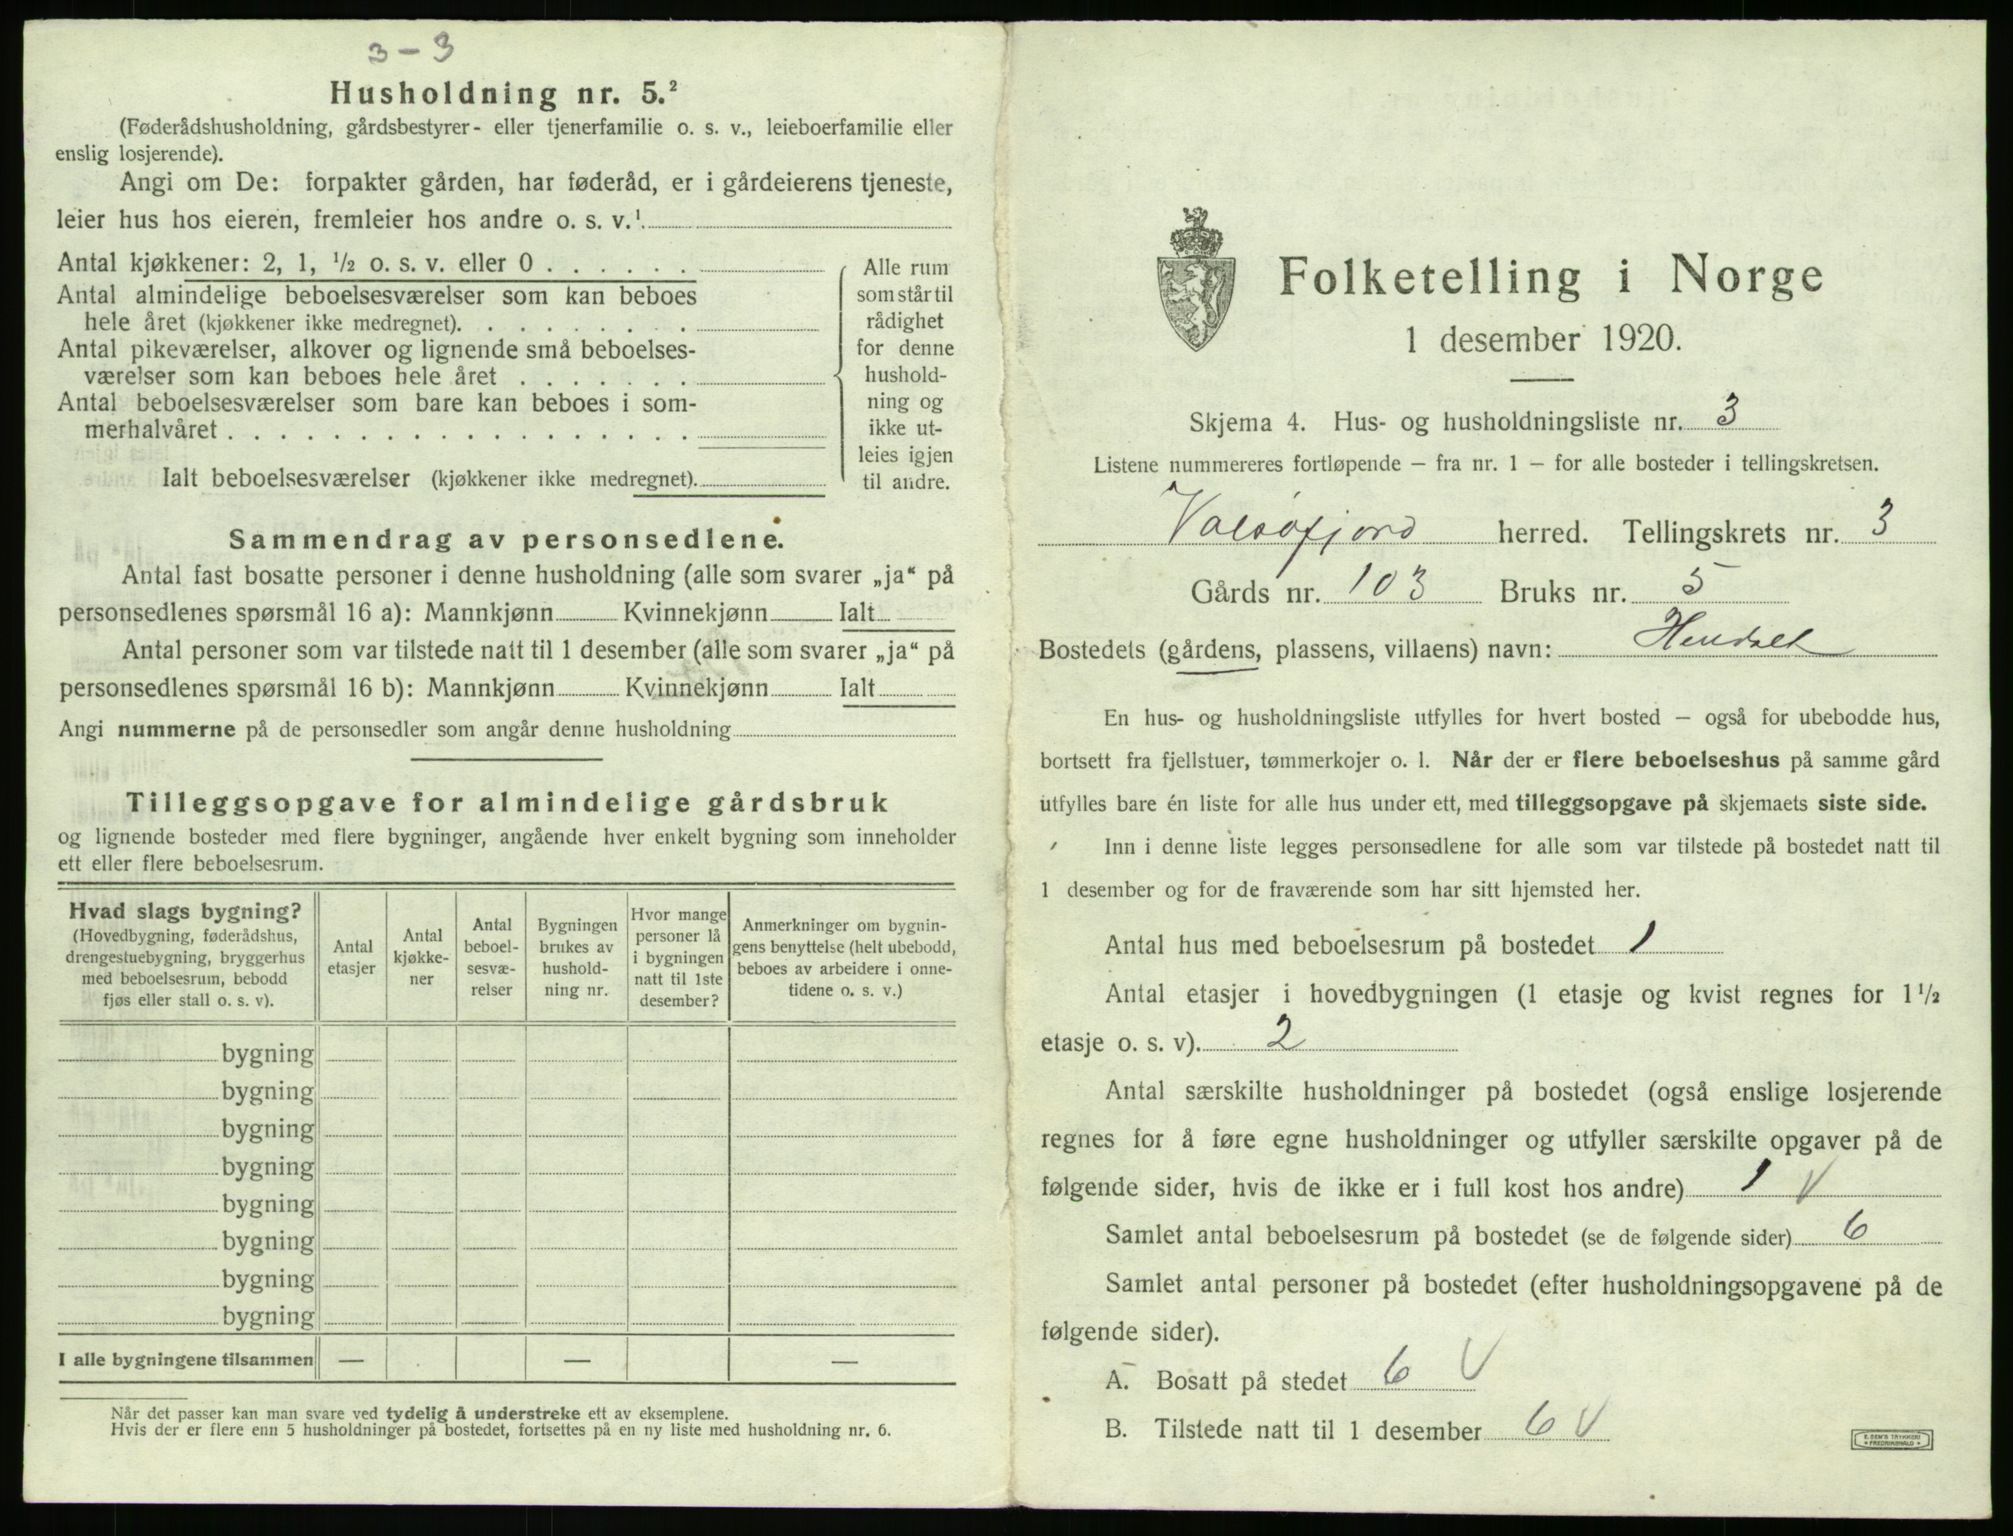 3 – 3
Husholdning nr. 5.²
(Føderådshusholdning, gårdsbestyrer- eller tjenerfamilie o. s. v., leieboerfamilie eller
enslig losjerende).
Angi om De: forpakter gården, har føderåd, er i gårdeierens tjeneste,
leier hus hos eieren, fremleier hos andre o. s. v.¹
Antal kjøkkener: 2, 1, ½ o. s. v. eller 0 . . . . . .
Antal almindelige beboelsesværelser som kan beboes
hele året (kjøkkener ikke medregnet). . . . . . . . .
Antal pikeværelser, alkover og lignende små beboelses-
værelser som kan beboes hele året . . . . . . .
Antal beboelsesværelser som bare kan beboes i som-
merhalvåret . . . . . . . . . . . . . . . . . .
Ialt beboelsesværelser (kjøkkener ikke medregnet).
Alle rum
som står til
rådighet
for denne
hushold-
ning og
ikke ut-
leies igjen
til andre.
Sammendrag av personsedlene.
Antal fast bosatte personer i denne husholdning (alle som svarer „ja“ på
personsedlenes spørsmål 16 a): Mannkjønn Kvinnekjønn Ialt
Antal personer som var tilstede natt til 1 desember (alle som svarer „ja“ på
personsedlenes spørsmål 16 b): Mannkjønn Kvinnekjønn Ialt
Angi nummerne på de personsedler som angår denne husholdning
Tilleggsopgave for almindelige gårdsbruk
og lignende bosteder med flere bygninger, angående hver enkelt bygning som inneholder
ett eller flere beboelsesrum.
Hvad slags bygning?
(Hovedbygning, føderådshus,
drengestuebygning, bryggerhus
med beboelsesrum, bebodd
fjøs eller stall o. s. v).
Antal
etasjer
Antal
kjøkke-
ner
Antal
beboel-
sesvæ-
relser
Bygningen
brukes av
hushold-
ning nr.
Hvor mange
personer lå
i bygningen
natt til 1ste
desember?
Anmerkninger om bygnin-
gens benyttelse (helt ubebodd,
beboes av arbeidere i onne-
tidene o. s. v.)
bygning
bygning
bygning
bygning
bygning
bygning
bygning
bygning
I alle bygningene tilsammen — — —
Når det passer kan man svare ved tydelig å understreke ett av eksemplene.
Hvis der er flere enn 5 husholdninger på bostedet, fortsettes på en ny liste med husholdning nr. 6.
Folketelling i Norge
1 desember 1920.
Skjema 4. Hus- og husholdningsliste nr. 3
Listene nummereres fortløpende – fra nr. 1 – for alle bosteder i tellingskretsen.
Valsøfjord herred. Tellingskrets nr. 3
Gårds nr. 103 Bruks nr. 5
Bostedets (gårdens, plassens, villaens) navn:
En hus- og husholdningsliste utfylles for hvert bosted – også for ubebodde hus,
bortsett fra fjellstuer, tømmerkojer o. l. Når der er flere beboelseshus på samme gård
utfylles bare én liste for alle hus under ett, med tilleggsopgave på skjemaets siste side.
Inn i denne liste legges personsedlene for alle som var tilstede på bostedet natt til
1 desember og for de fraværende som har sitt hjemsted her.
Antal hus med beboelsesrum på bostedet 1
Antal etasjer i hovedbygningen (1 etasje og kvist regnes for 1½
etasje o. s. v). 2
Antal særskilte husholdninger på bostedet (også enslige losjerende
regnes for å føre egne husholdninger og utfyller særskilte opgaver på de
følgende sider, hvis de ikke er i full kost hos andre) 1 V
Samlet antal beboelsesrum på bostedet (se de følgende sider) 6
Samlet antal personer på bostedet (efter husholdningsopgavene på de
følgende sider).
A. Bosatt på stedet 6 V
B. Tilstede natt til 1 desember 6 V